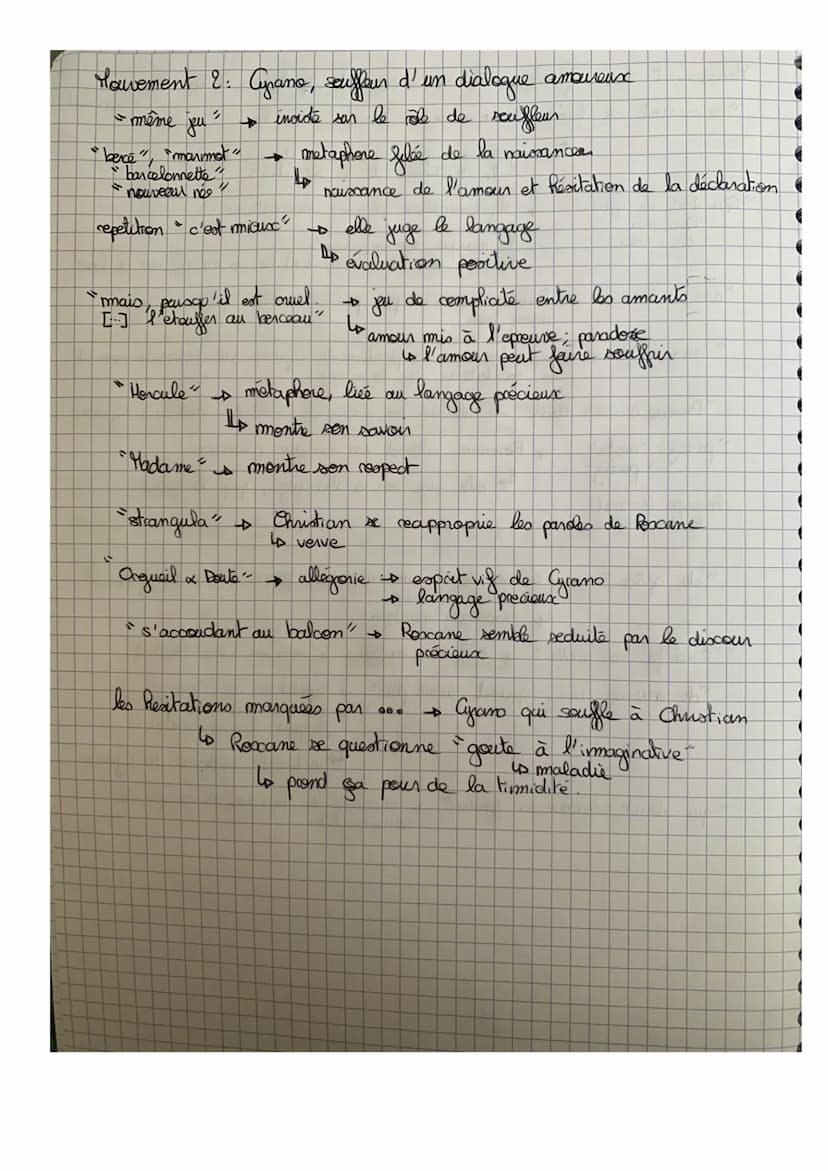 Mouvement 2: Cyrano, souffleur d'un dialogue amoureux
"même jeu" → insiste sur le rôle de souffleur
"bercé", "marmot" → metaphore filée de la naissance
"barcelonnette"
"nouveau né" ↳ naissance de l'amour et hésitation de la déclaration
repetition "c'est mieux" → elle juge le langage
↳ évaluation positive
"mais, puisqu'il est cruel. → jeu de complicité entre les amants
[...] l'étouffer au berceau" ↳ amour mis à l'epreuve; paradoxe
↳ l'amour peut faire souffrir
"Hercule" → métaphore, liée au langage précieux
↳ montre son savoir
"Madame" → montre son respect
"strangula" → Christian se reapproprie les paroles de Roxane
↳ verve
"Orgueil & Doute" → allégorie → esprit vif de Cyrano
→ langage precieux
"s'accoudant au balcon" → Roxane semble seduite par le discour
précieux
les hesitations marquées par ... → Cyrano qui souffle à Christian
↳ Roxane se questionne "goute à l'imaginative"
↳ maladie
↳ prend ça pour de la timidité.